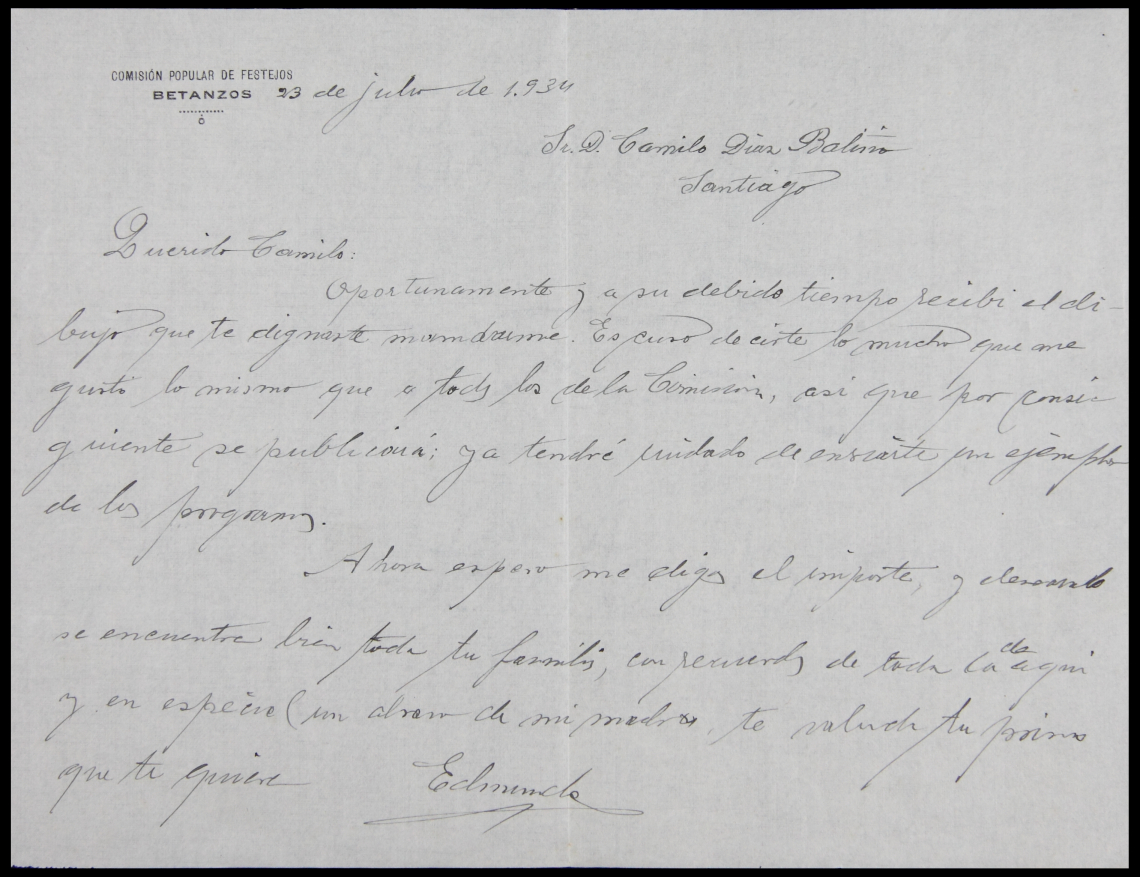 COMISIÓN POPULAR DE FESTEJOS
BETANZOS 23 de julio de 1.934
Sr. D. Camilo Diaz Baliño
Santiago
Querido Camilo:
Oportunamente y a su debido tiempo recibi el di-
bujo que te dignaste mandarme. Escuso decirte lo mucho que me
gustó lo mismo que a todos los de la Comisión, asi que por consi-
guiente se publicará; ya tendré cuidado de enviarte un ejemplar
de los programas.
Ahora espero me digas el importe, y deseando
se encuentre bien toda tu familia, con recuerdos de toda la de aqui
y en especial un abrazo de mi madre, te saluda tu primo
que te quiere Edmundo